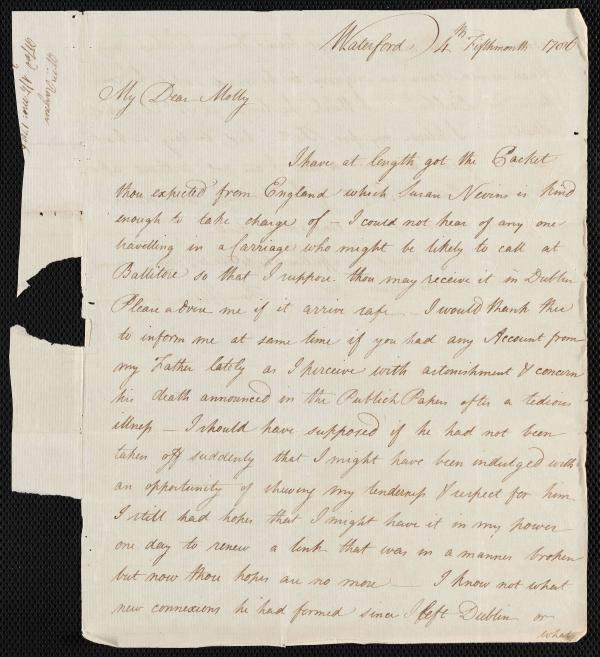 Waterford 4th Fifthmonth
My Dear Molly
I have at length got the Packet
thou expected from England which Susan Nevins is kind
enough to take charge of – I could not hear of any one
travelling in a Carriage who might be likely to call at
Ballitore so that I suppose thou may receive it in Dublin
Please advise me if it arrive safe – I would thank thee
to inform me at same time if you had any Account from
my Father lately as I perceive with astonishment & concern
his death announced in the Publick Papers after a tedious
illness – I should have supposed if he had not been
taken off suddenly that I might have been indulged with
an opportunity of shewing my tenderness & respect for him
I still had hopes that I might have it in my power
one day to renew a link that was in a manner broken
but now those hopes are no more — I know not what
new connexions he had formed since I left Dublin or
what